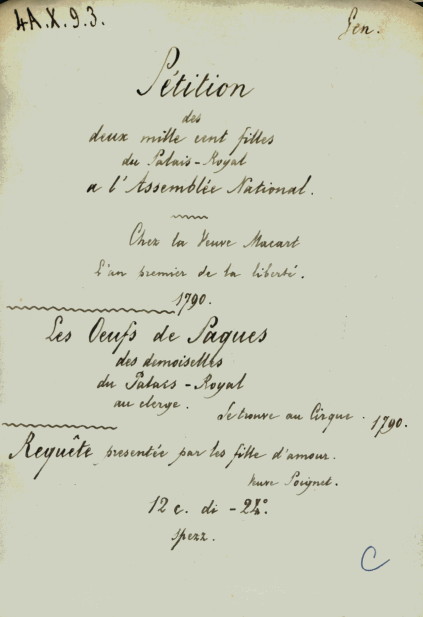 4A.X.9.3.
Gen.
Pétition
des
deux mille cent filles
du Palais-Royal
a l'Assemblée National.
Chez la Veuve Macart
L'an premier de la liberté.
1790.
Les Oeufs de Paques
des demoiselles
du Palais-Royal
au clerge.
Se trouve au Cirque. 1790.
Requête presentée par les fille d'amour.
Veuve Poignet.
12 c. di - 24°.
spezz.
C